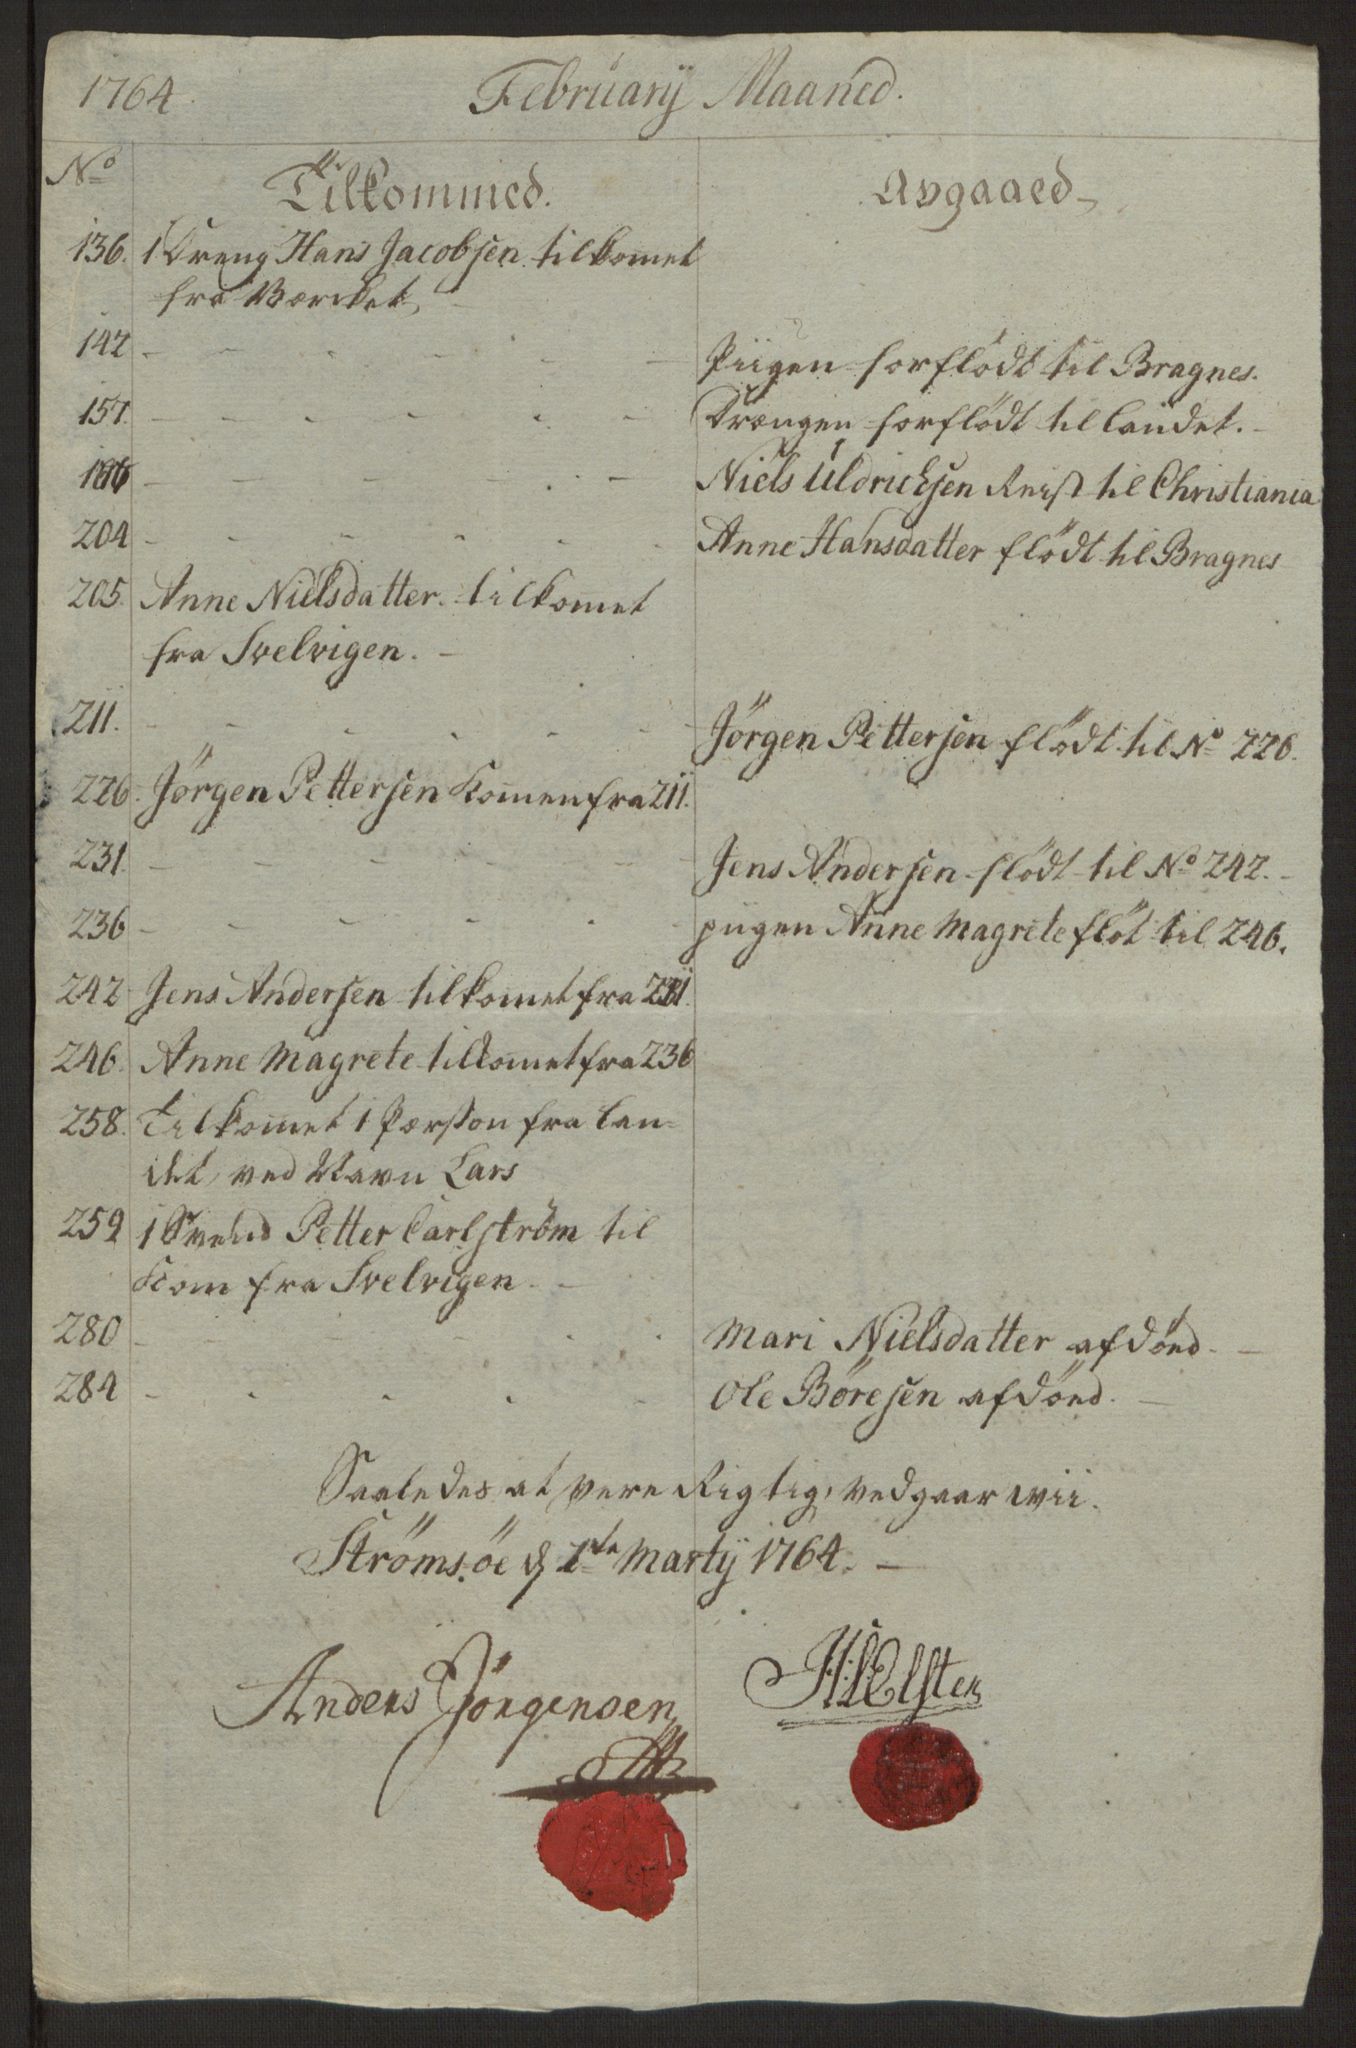 1764 Februarij Maaned.
No Tilkommed. Avgaaed
136. 1 Dreng Hans Jacobsen tilkomet
fra Værcket,
142 - - - - - - Piigen forflödt til Bragnes.
157. - - - - - - Drængen forflödt til landet.
- - - - - - Niels Uldrichsen Reist til Christiania
204 - - - - - - Anne Hansdatter flödt til Bragnes
205. Anne Nielsdatter tilkomet
fra Svelvigen.
211. - - - - - - Jörgen Pettersen flödt til No 226.
226. Jörgen Pettersen Komen fra 211.
231. - - - - - - Jens Andersen flödt til No 242.
236 - - - - - - piigen Anne Magrete flöt til 246.
242 Jens Andersen tilkomet fra 231.
246. Anne Magrete tilkomet fra 236
258. Tilkomet 1 Person fra lan=
det, ved Navn Lars
259 1 Svend Petter Carlström til
Kom fra Svelvigen.
280 - - - - - - Mari Nielsdatter afdöed.
284 - - - - - - Ole Böresen afdöed.
Saaledes at være Rigtig, vedgaar wii.
Ströms.öe d 1te Martij 1764.
Anders Jörgensen H Elster